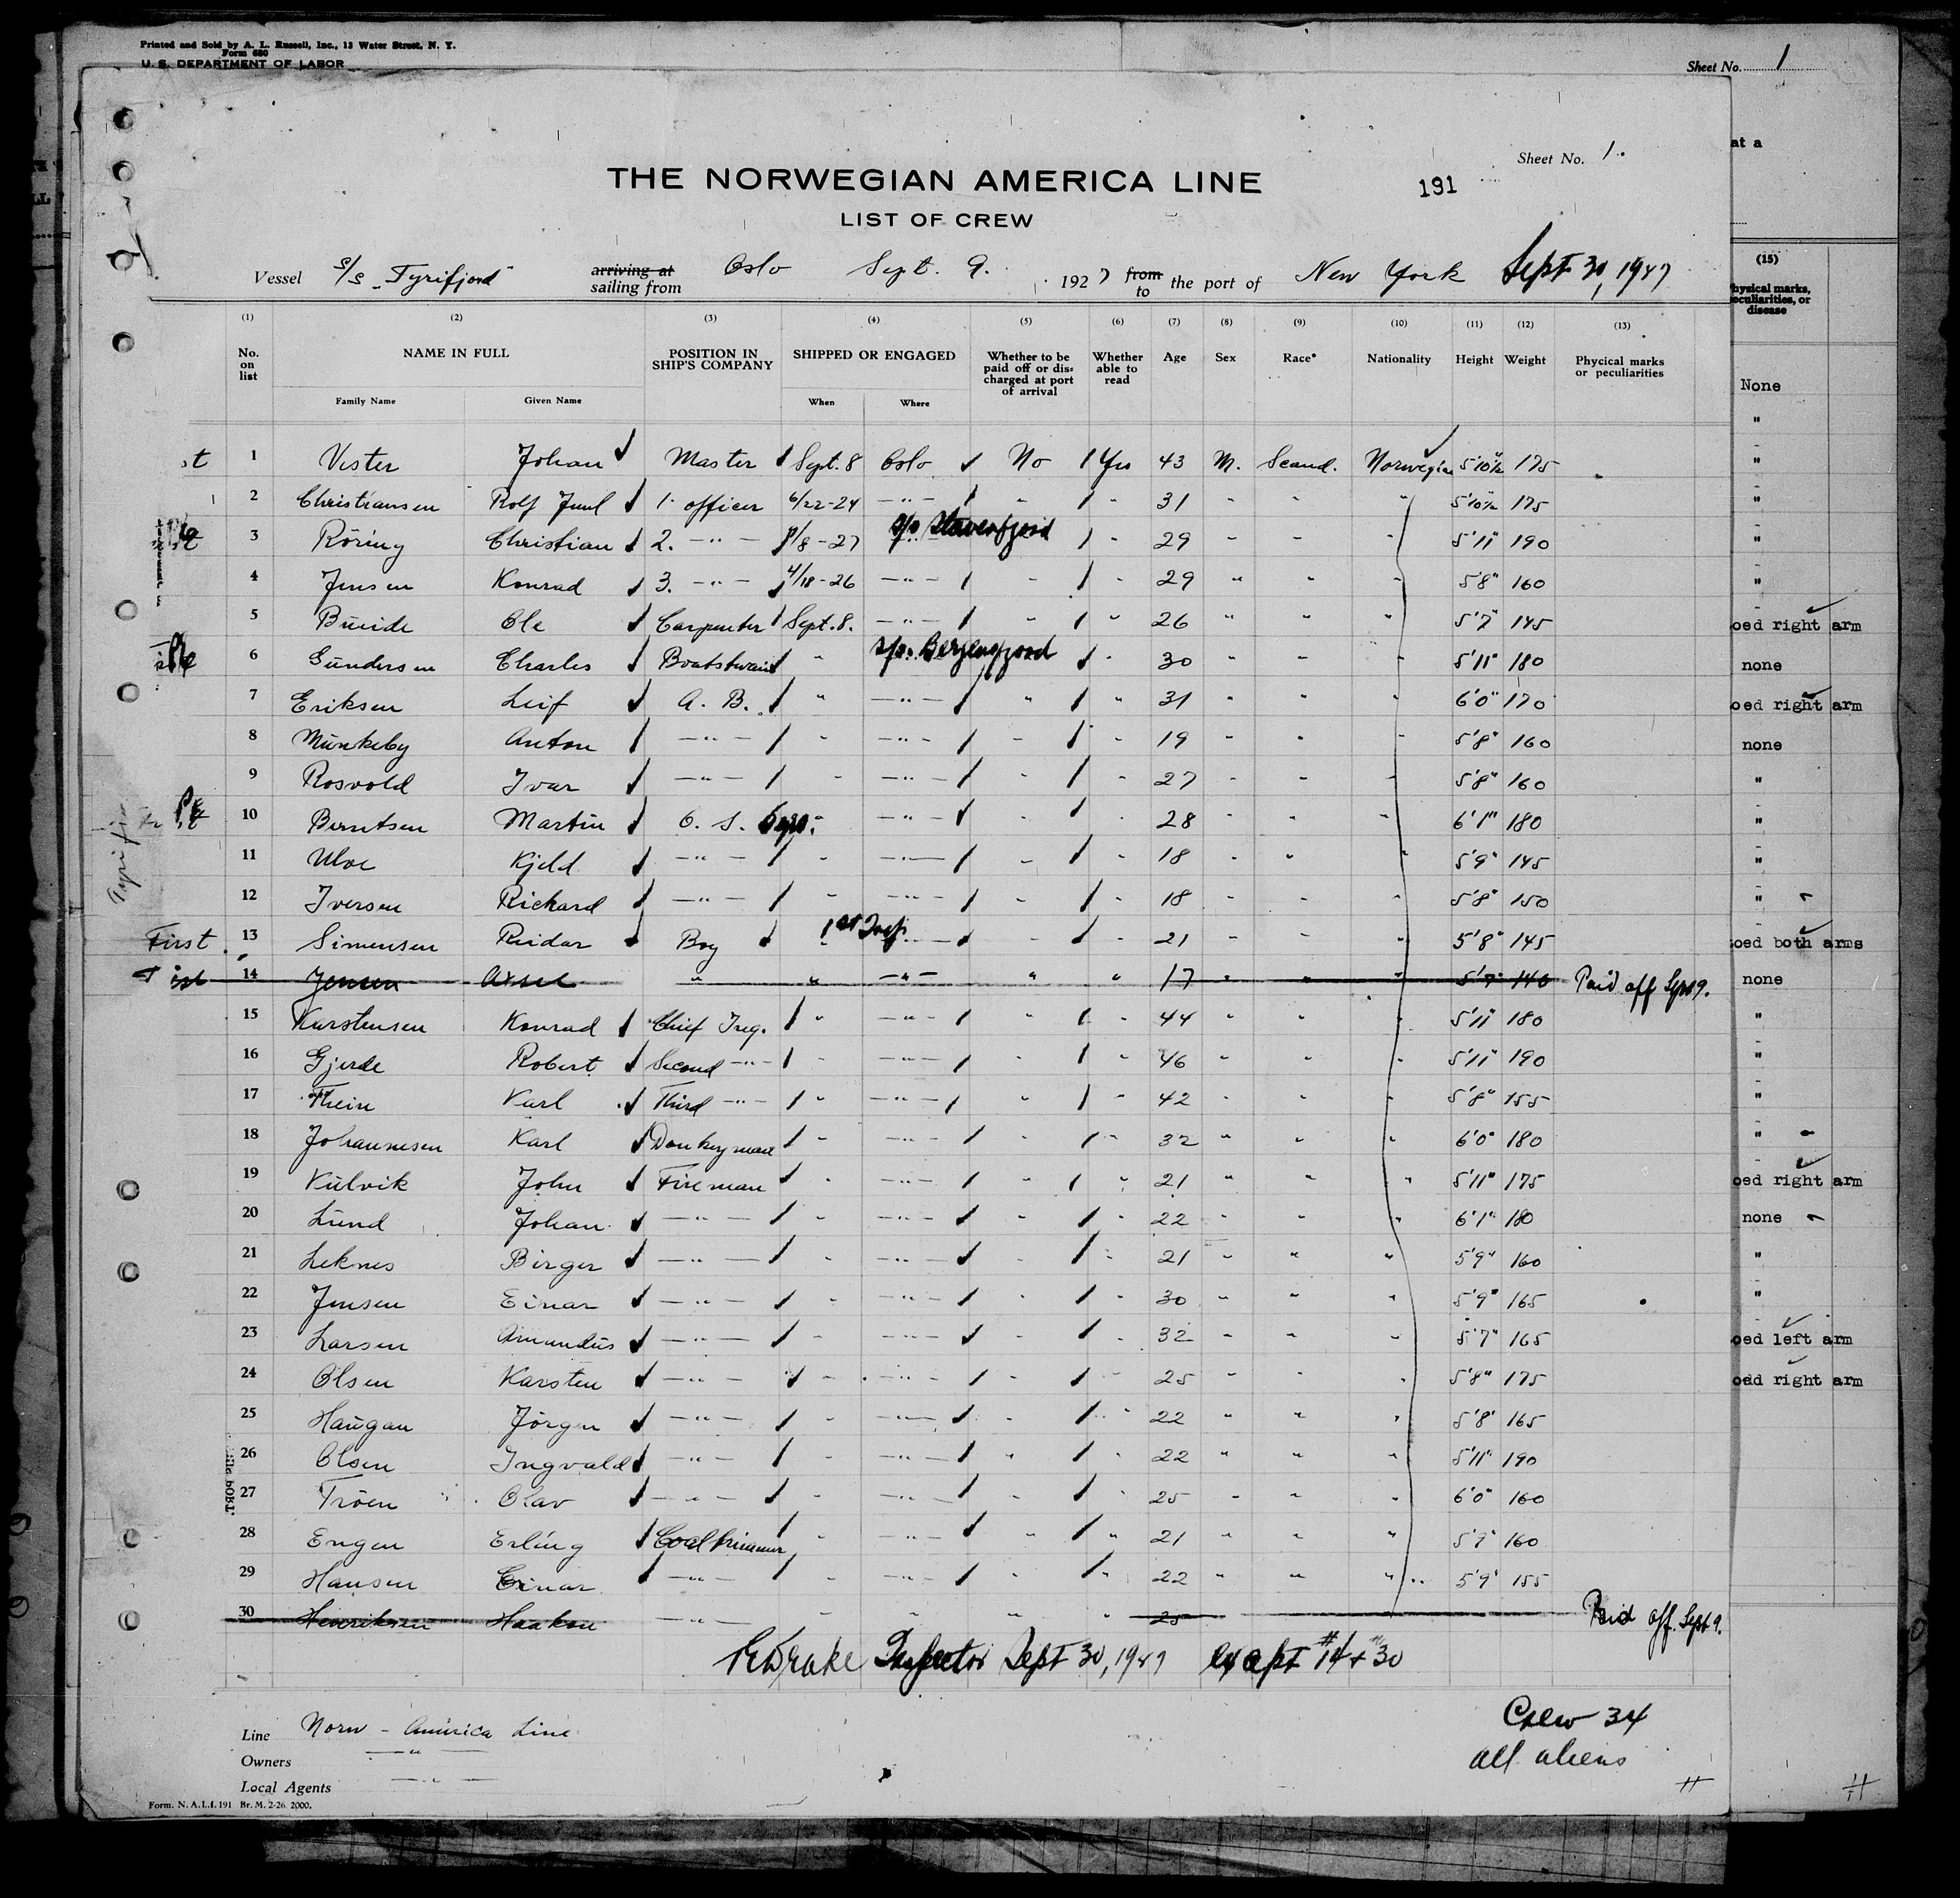 Printed and Sold by A. L. Russell, Inc., 13 Water Street, N. Y.
Form 680
U. S. DEPARTMENT OF LABOR
Sheet No. 1
at a
Sheet No. 1.
THE NORWEGIAN AMERICA LINE
191
LIST OF CREW
Vessel S/S "Tyrifjord" arriving at sailing from Oslo Sept. 9. 1927 from to the port of New York Sept 30, 1927
(1) (2) (3) (4) (5) (6) (7) (8) (9) (10) (11) (12) (13) (15)
No. on list NAME IN FULL POSITION IN SHIP'S COMPANY SHIPPED OR ENGAGED Whether to be paid off or discharged at port of arrival Whether able to read Age Sex Race* Nationality Height Weight Phycical marks or peculiarities
hysical marks, eculiarities, or disease
Family Name Given Name When Where
None
1 Vister Johan Master Sept. 8 Oslo No Yes 43 M. Scand. Norwegian 5'10½ 175 "
2 Christiansen Rolf Juul 1. officer 6/22-24 -"- " " 31 " " " 5'10½ 175 "
3 Röring Christian 2. -"- 8/8-27 s/s Stavengfjord " 29 " " " 5'11" 190 "
4 Jensen Konrad 3. -"- 4/18-26 -"- " " 29 " " " 5'8" 160 "
5 Bueide Ole Carpenter Sept. 8. -"- " " 26 " " " 5'7" 145 oed right arm
6 Gundersen Charles Boatswain " s/s. Bergensfjord " 30 " " " 5'11" 180 none
7 Eriksen Leif A. B. " -"- " " 31 " " " 6'0" 170 oed right arm
8 Munkeby Anton -"- " -"- " " 19 " " " 5'8" 160 none
9 Rosvold Ivar -"- " -"- " " 27 " " " 5'8" 160 "
10 Berntsen Martin O. S. " -"- " " 28 " " " 6'1" 180 "
11 Uloe Kjeld -"- " -"- " " 18 " " " 5'9" 145 "
12 Iversen Richard -"- " -"- " " 18 " " " 5'8" 150 "
First 13 Simensen Reidar Boy " -"- " " 21 " " " 5'8" 145 oed both arms
14 Jensen Aksel " " -"- " " 17 " " " 5'7" 140 Paid off Sept 9. none
15 Karstensen Konrad Chief Ing. " -"- " " 44 " " " 5'11" 180 "
16 Gjerde Robert Second -"- " -"- " " 46 " " " 5'11" 190 "
17 Thein Karl Third -"- " -"- " " 42 " " " 5'8" 155 "
18 Johannesen Karl Donkeyman " -"- " " 32 " " " 6'0" 180 "
19 Kulvik John Fireman " -"- " " 21 " " " 5'11" 175 oed right arm
20 Lund Johan -"- " -"- " " 22 " " " 6'1" 180 none
21 Leknes Birger -"- " -"- " " 21 " " " 5'9" 160 "
22 Jensen Einar -"- " -"- " " 30 " " " 5'9" 165 "
23 Larsen Amundus -"- " -"- " " 32 " " " 5'7" 165 oed left arm
24 Olsen Karsten -"- " -"- " " 25 " " " 5'8" 175 oed right arm
25 Haugan Jörgen -"- " -"- " " 22 " " " 5'8" 165
26 Olsen Ingvald -"- " -"- " " 22 " " " 5'11" 190
27 Tröen Olav -"- " -"- " " 25 " " " 6'0" 160
28 Engen Erling Coaltrimmer " -"- " " 21 " " " 5'9" 160
29 Hansen Einar -"- " -"- " " 22 " " " 5'9" 155
30 Henriksen Haakon -"- " " " " 25 Paid off. Sept 9.
Drake Inspector Sept 30, 1927 except #14 + #30
Crew 34
all aliens
Line Norw - America Line
Owners -"-
Local Agents -"-
Form. N. A. L. I. 191 Br. M. 2-26. 2000.